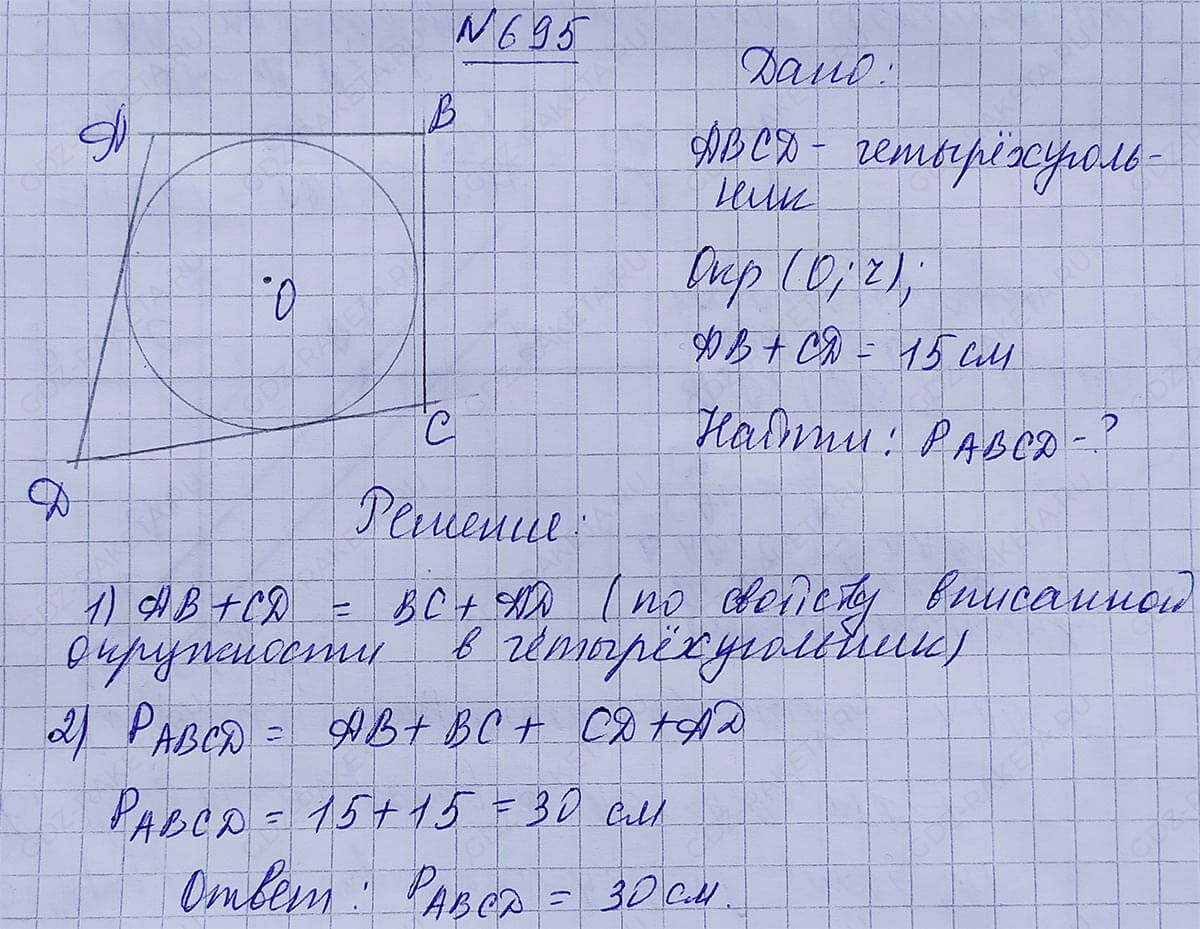 №695
A
B
O
C
D
Дано:
ABCD - четырёхуголь-
ник
Окр (O; r);
AB + CD = 15 см
Найти: P ABCD - ?
Решение:
1) AB + CD = BC + AD (по свойству вписанной
окружности в четырёхугольник)
2) P ABCD = AB + BC + CD + AD
P ABCD = 15 + 15 = 30 см
Ответ: P ABCD = 30 см.
GDZ-RAKETA.RU